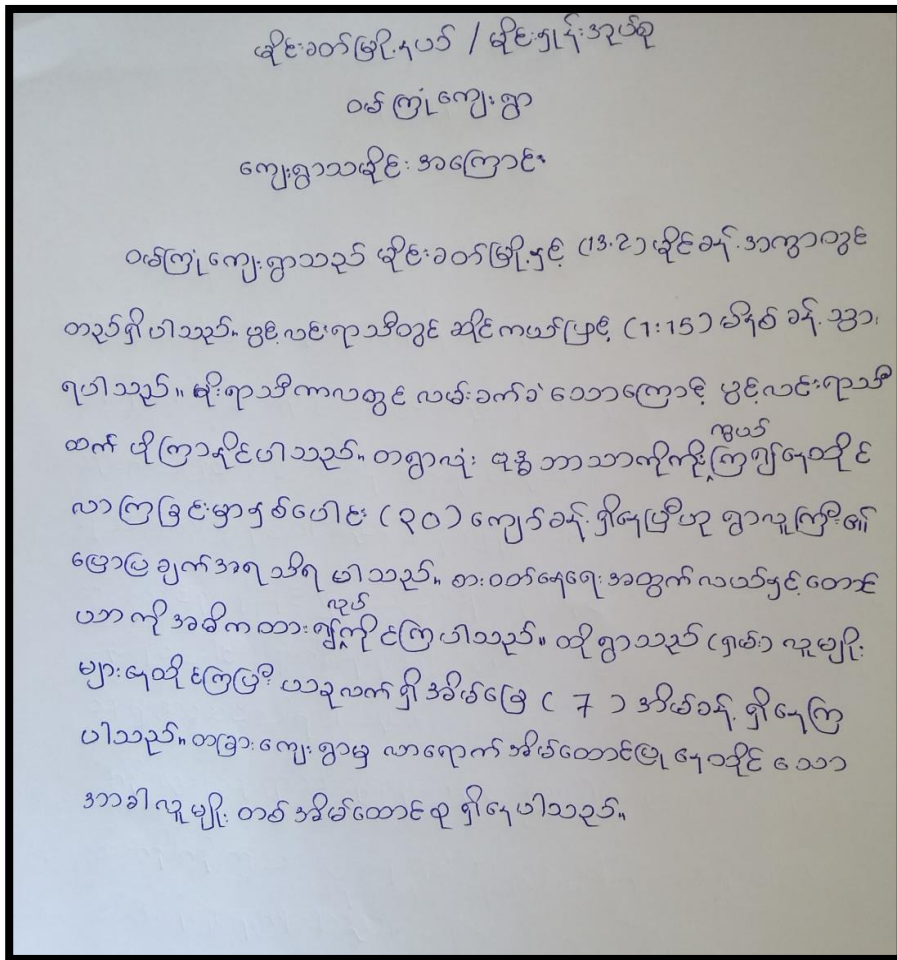 မိုင်းခတ်မြို့နယ် / မိုင်းဟွန်းအုပ်စု
ဝမ်ကြုံကျေးရွာ
ကျေးရွာသမိုင်းအကြောင်း
ဝမ်ကြုံကျေးရွာသည် မိုင်းခတ်မြို့နှင့် (13.2) မိုင်ခန့်အကွာတွင်
တည်ရှိပါသည်။ ပွင့်လင်းရာသီတွင် ဆိုင်ကယ်ဖြင့် (1:15) မိနစ်ခန့်သွား
ရပါသည်။ မိုးရာသီကာလတွင် လမ်းခက်ခဲသောကြောင့် ပွင့်လင်းရာသီ
ထက် ပိုကြာနိုင်ပါသည်။ တရွာလုံး ဗုဒ္ဓဘာသာကိုကိုးကွယ်ကြ၍နေထိုင်
လာကြခြင်းမှာနှစ်ပေါင်း (၃၀) ကျော်ခန့်ရှိနေပြီဟု ရွာလူကြီး၏
ပြောပြချက်အရသိရပါသည်။ စားဝတ်နေရေးအတွက်လယ်နှင့်တောင်
ယာကိုအဓိကထား၍လုပ်ကိုင်ကြပါသည်။ ထိုရွာသည် (ရှမ်း) လူမျိုး
များနေထိုင်ကြပြီး ယခုလက်ရှိအိမ်ခြေ ( 7 ) အိမ်ခန့် ရှိနေကြ
ပါသည်။ တခြားကျေးရွာမှ လာရောက်အိမ်ထောင်ပြုနေထိုင်သော
အာခါလူမျိုး တစ်အိမ်ထောင်စု ရှိနေပါသည်။